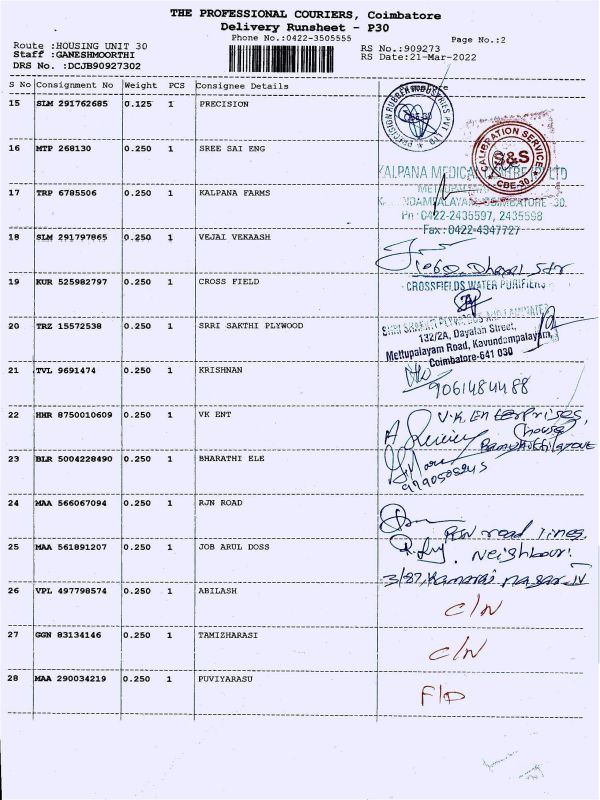 THE PROFESSIONAL COURIERS, Coimbatore
Delivery Runsheet - P30
Phone No.:0422-3505555
Page No.:2
Route :HOUSING UNIT 30
Staff :GANESHMOORTHI
DRS No. :DCJB90927302
RS No.:909273
RS Date:21-Mar-2022
S No Consignment No Weight PCS Consignee Details
15 SLM 291762685 0.125 1 PRECISION
PRECISION RUBBER INDUSTRIES PVT LTD
16 MTP 268130 0.250 1 SREE SAI ENG
CALIBRATION SERVICE
S&S
CBE-30
KALPANA MEDICAL CENTRE P LTD
17 TRP 6785506 0.250 1 KALPANA FARMS
COIMBATORE -30.
Ph : 0422-2435597, 2435598
Fax : 0422-4347727
18 SLM 291797865 0.250 1 VEJAI VEKAASH
19 KUR 525982797 0.250 1 CROSS FIELD
CROSSFIELDS WATER PURIFIERS
20 TRZ 15572538 0.250 1 SRRI SAKTHI PLYWOOD
132/2A, Dayalan Street,
Mettupalayam Road, Kavundampalayam,
Coimbatore-641 030
21 TVL 9691474 0.250 1 KRISHNAN
9061484488
22 HHR 8750010609 0.250 1 VK ENT
V.K Enterprises,
23 BLR 5004228490 0.250 1 BHARATHI ELE
24 MAA 566067094 0.250 1 RJN ROAD
25 MAA 561891207 0.250 1 JOB ARUL DOSS
Neighbour.
3/87, Kamaraj nagar IV
26 VPL 497798574 0.250 1 ABILASH
C/N
27 GGN 83134146 0.250 1 TAMIZHARASI
C/N
28 MAA 290034219 0.250 1 PUVIYARASU
F/D